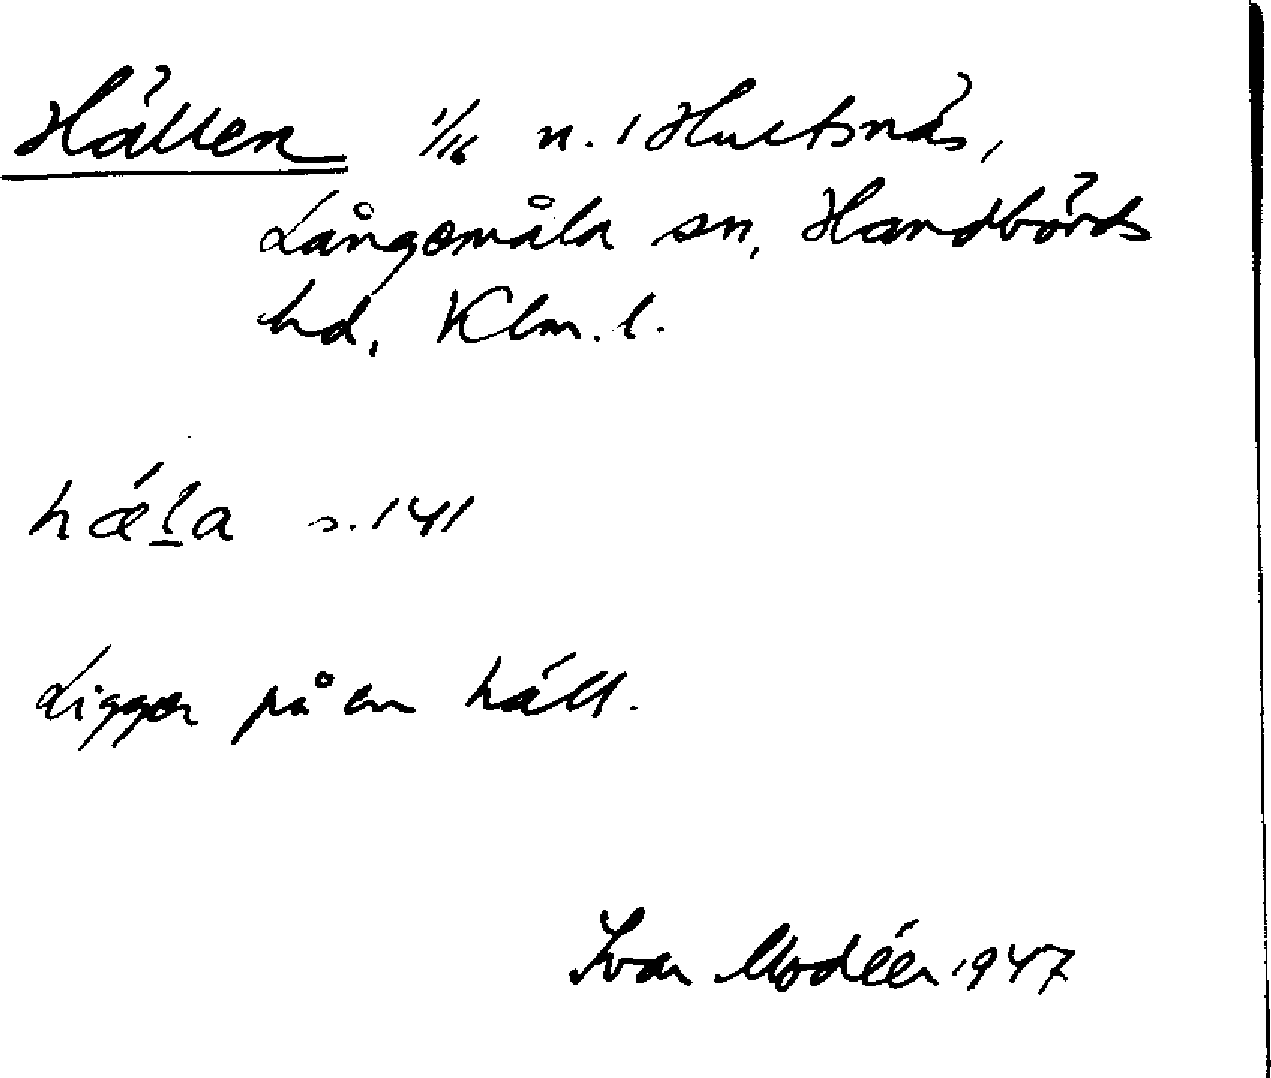 Hällen 1/16 n. 1 Hultsnäs,
Långemåla sn, Handbörds
hd, Klm. l.
hǽl̲a s. 141
Ligger på en häll.
Ivar Modéer 1947